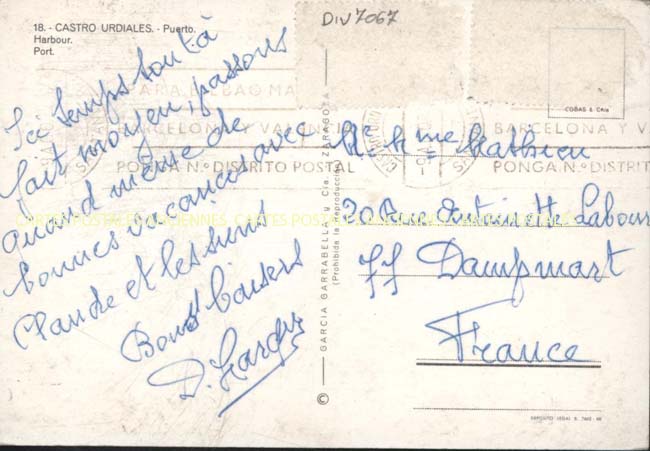 18. - CASTRO URDIALES. - Puerto.
Harbour.
Port.
DIV7067
COBAS & Cría
Ici temps tout à
fait moyen, passons
quand même de
bonnes vacances avec
Claudie et les siens
Bons baisers
PARA BILBAO MA
BARCELONA Y VALENCIA
PONGA N.º DISTRITO POSTAL
BARCELONA Y V
PONGA N.º DISTRIT
CARTES POSTALES ANCIENNES CARTES POSTALES
GARCIA GARRABELLA y Cía. - ZARAGOZA
(Prohibida la Reproducción)
©
Mr & Mme Mathieu
30B
77 Dampmart
France
DEPOSITO LEGAL B.